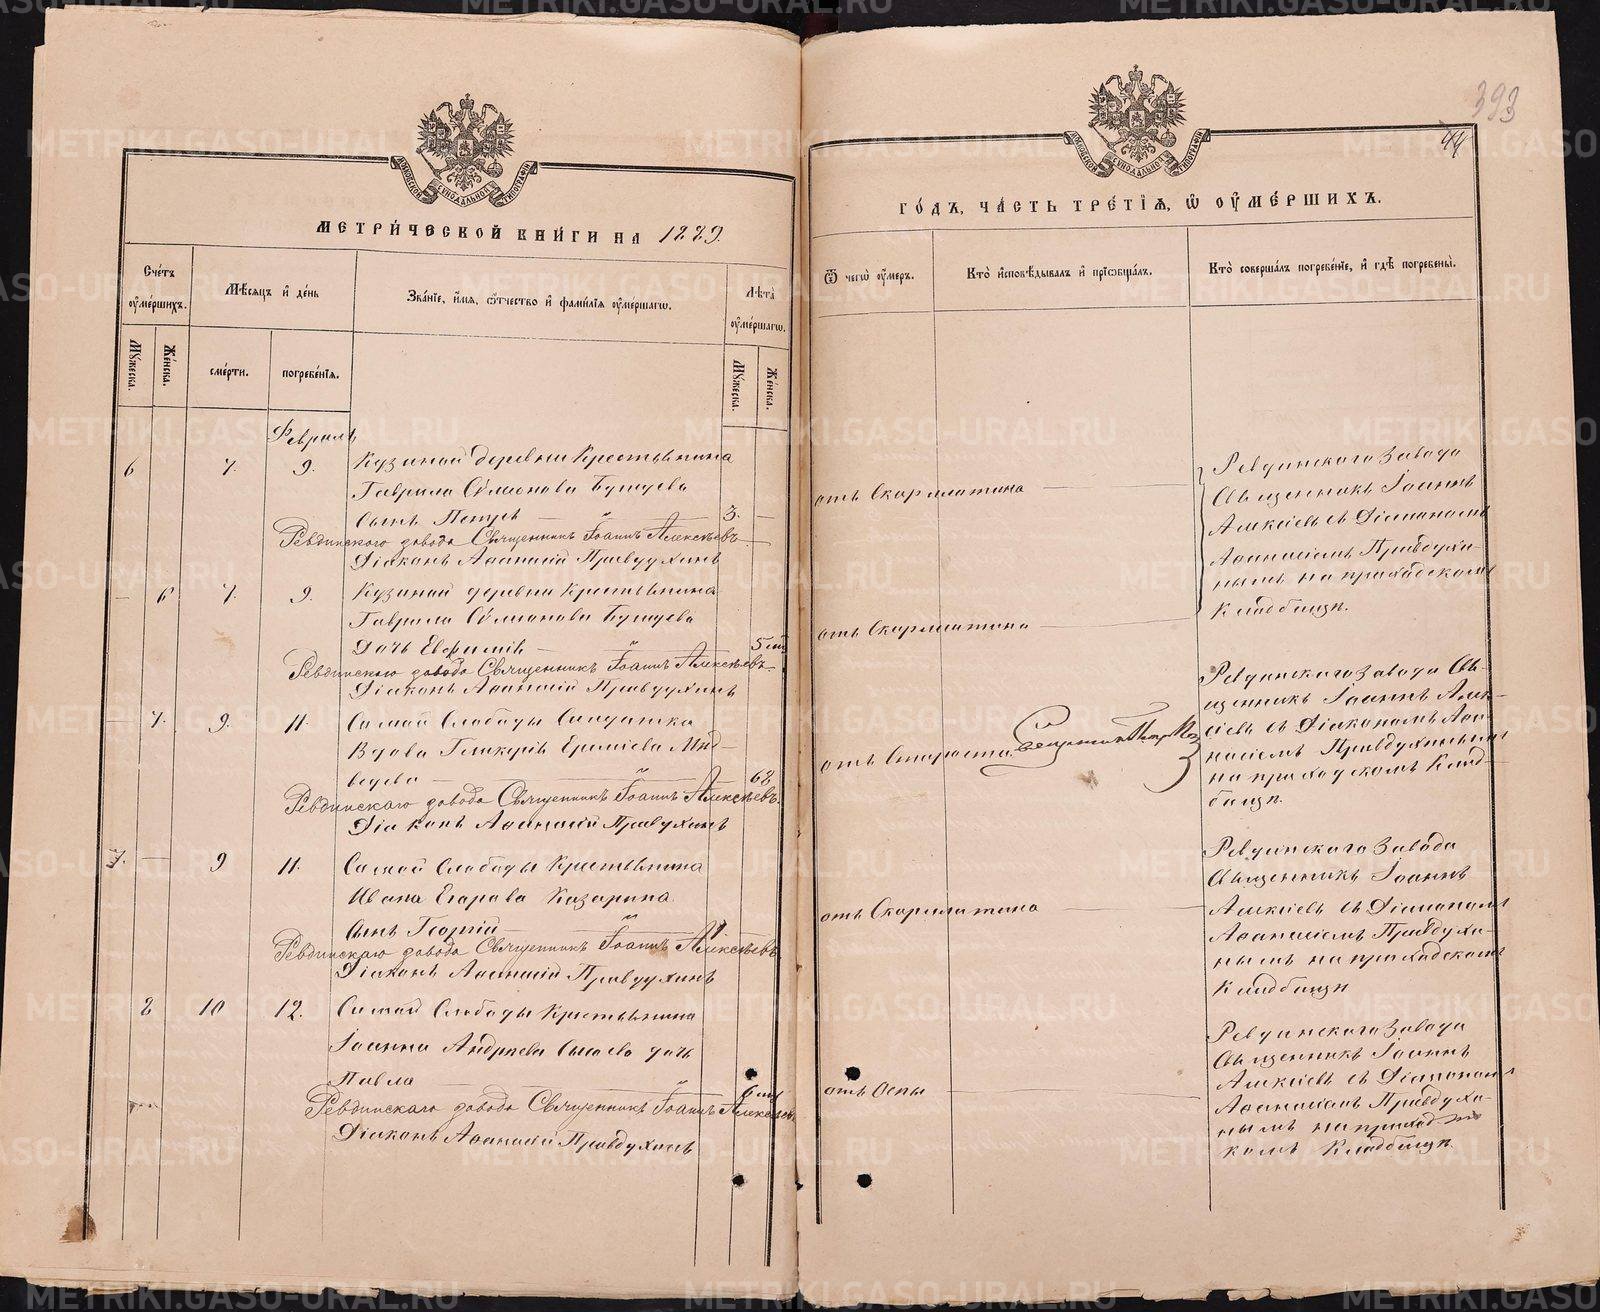 393
44
МОСКОВСКОЙ СУНОДАЛЬНОЙ ТИПОГРАФІИ
МОСКОВСКОЙ СУНОДАЛЬНОЙ ТИПОГРАФІИ
МЕТРИ́ЧЕСКОЙ КНИ́ГИ НА 1889.
ГО́ДЪ, ЧА́СТЬ ТРЕ́ТІѦ, Ѡ҆ ОУ҆МЕ́РШИХЪ.
Сче́тъ оу҆ме́ршихъ.
Мѣ́сяцъ и҆ де́нь
Зва́ніе, и҆́мя, ѻ҆́тчество и҆ фами́лія оу҆ме́ршагѡ.
Лѣ́та оу҆ме́ршагѡ.
Му́жеска.
Же́нска.
сме́рти.
погребе́нія.
Му́жеска.
Же́нска.
Ѿ чегѡ̀ оу҆́меръ.
Кто̀ и҆сповѣ́дывалъ и҆ прїѡбща́лъ.
Кто̀ соверша́лъ погребе́ніе, и҆ гдѣ̀ погребены̀.
Февраль
6 7. 9. Кузиной деревни Крестьянина
Гаврила Сѵмеонова
Сынъ Петръ 3.
Ревдинскаго завода Священникъ Іоаннъ Алексѣевъ
Діаконъ Аѳанасій Правдухинъ
отъ Скарлатина
Ревдинскаго Завода
Священникъ Іоаннъ
Алексіевъ съ Діакономъ
Аѳанасіемъ Правдухи-
нымъ на приходскомъ
Кладбищѣ.
6 7. 9. Кузиной деревни Крестьянина
Гаврила Сѵмеонова
Дочь Евѳимія 5
Ревдинскаго завода Священникъ Іоаннъ Алексѣевъ
Діаконъ Аѳанасій Правдухинъ
отъ Скарлатина
7. 9. 11. Самой Слободы Солдатка
Вдова Гликерія Ереміева Мед-
ведева 62
Ревдинскаго завода Священникъ Іоаннъ Алексѣевъ
Діаконъ Аѳанасій Правдухинъ
отъ Старости
Священникъ
Ревдинскаго Завода Свя-
щенникъ Іоаннъ Алек-
сіевъ съ Діакономъ Аѳа-
насіемъ Правдухинымъ
на приходскомъ Клад-
бищѣ.
7. 9 11. Самой Слободы Крестьянина
Ивана Егорова Казарина
Сынъ Георгій
Ревдинскаго завода Священникъ Іоаннъ Алексѣевъ
Діаконъ Аѳанасій Правдухинъ
отъ Скарлатина
Ревдинскаго Завода
Священникъ Іоаннъ
Алексіевъ съ Діакономъ
Аѳанасіемъ Правдухи-
нымъ на приходскомъ
Кладбищѣ
8 10 12. Самой Слободы Крестьянина
Іоанна Андреева дочь
Павла 6
Ревдинскаго завода Священникъ Іоаннъ Алексѣевъ
Діаконъ Аѳанасій Правдухинъ
отъ Оспы
Ревдинскаго Завода
Священникъ Іоаннъ
Алексіевъ съ Діакономъ
Аѳанасіемъ Правдухи-
нымъ на приходс-
комъ Кладбищѣ.
METRIKI.GASO-URAL.RU